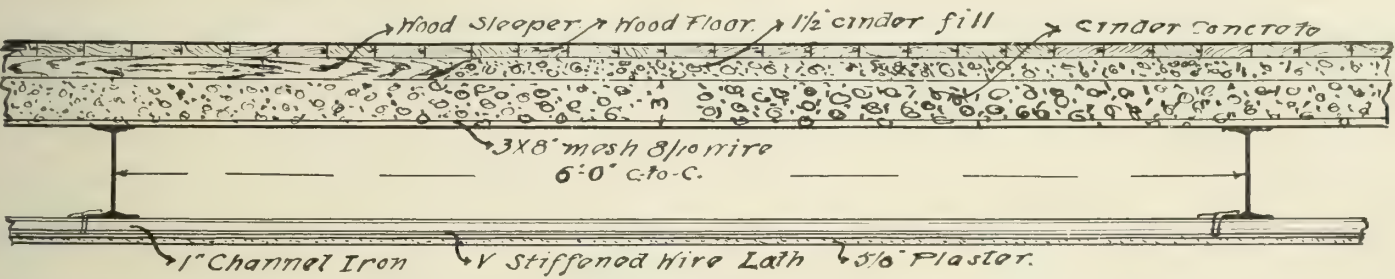 Wood Sleeper Wood Floor. 1½" cinder fill Cinder Concrete
3
3X8" mesh 8/10 wire
6'-0" C-to-C.
1" Channel Iron V Stiffened Wire Lath 5/8" Plaster.